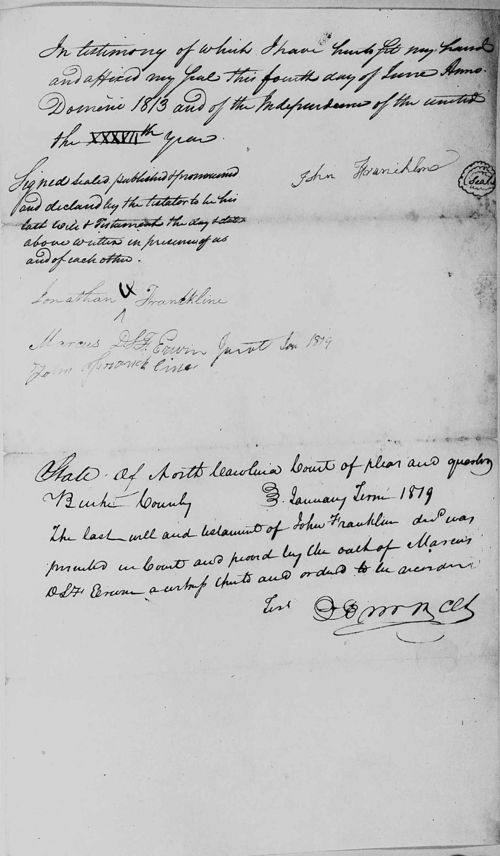 In testimony of which I have hereunto set my hand
and affixed my seal this fourth day of June Anno
Domini 1813 and of the Independence of the united
the XXXVIIth year.
John Francklin
Seal
Signed sealed published & pronounced
and declared by the testator to be his
last will & Testament the day & date
above written in presence of us
and of each other.
Jonathan Franckline
Marcus D L F Erwin Jurat Jan 1819
John
State of North Carolina Court of pleas and quarter
Burke County January Term 1819
The last will and testament of John Franklin decd was
presented in Court and proved by the oath of Marcus
D L F Erwin a and ordered to be recorded
Test Clk